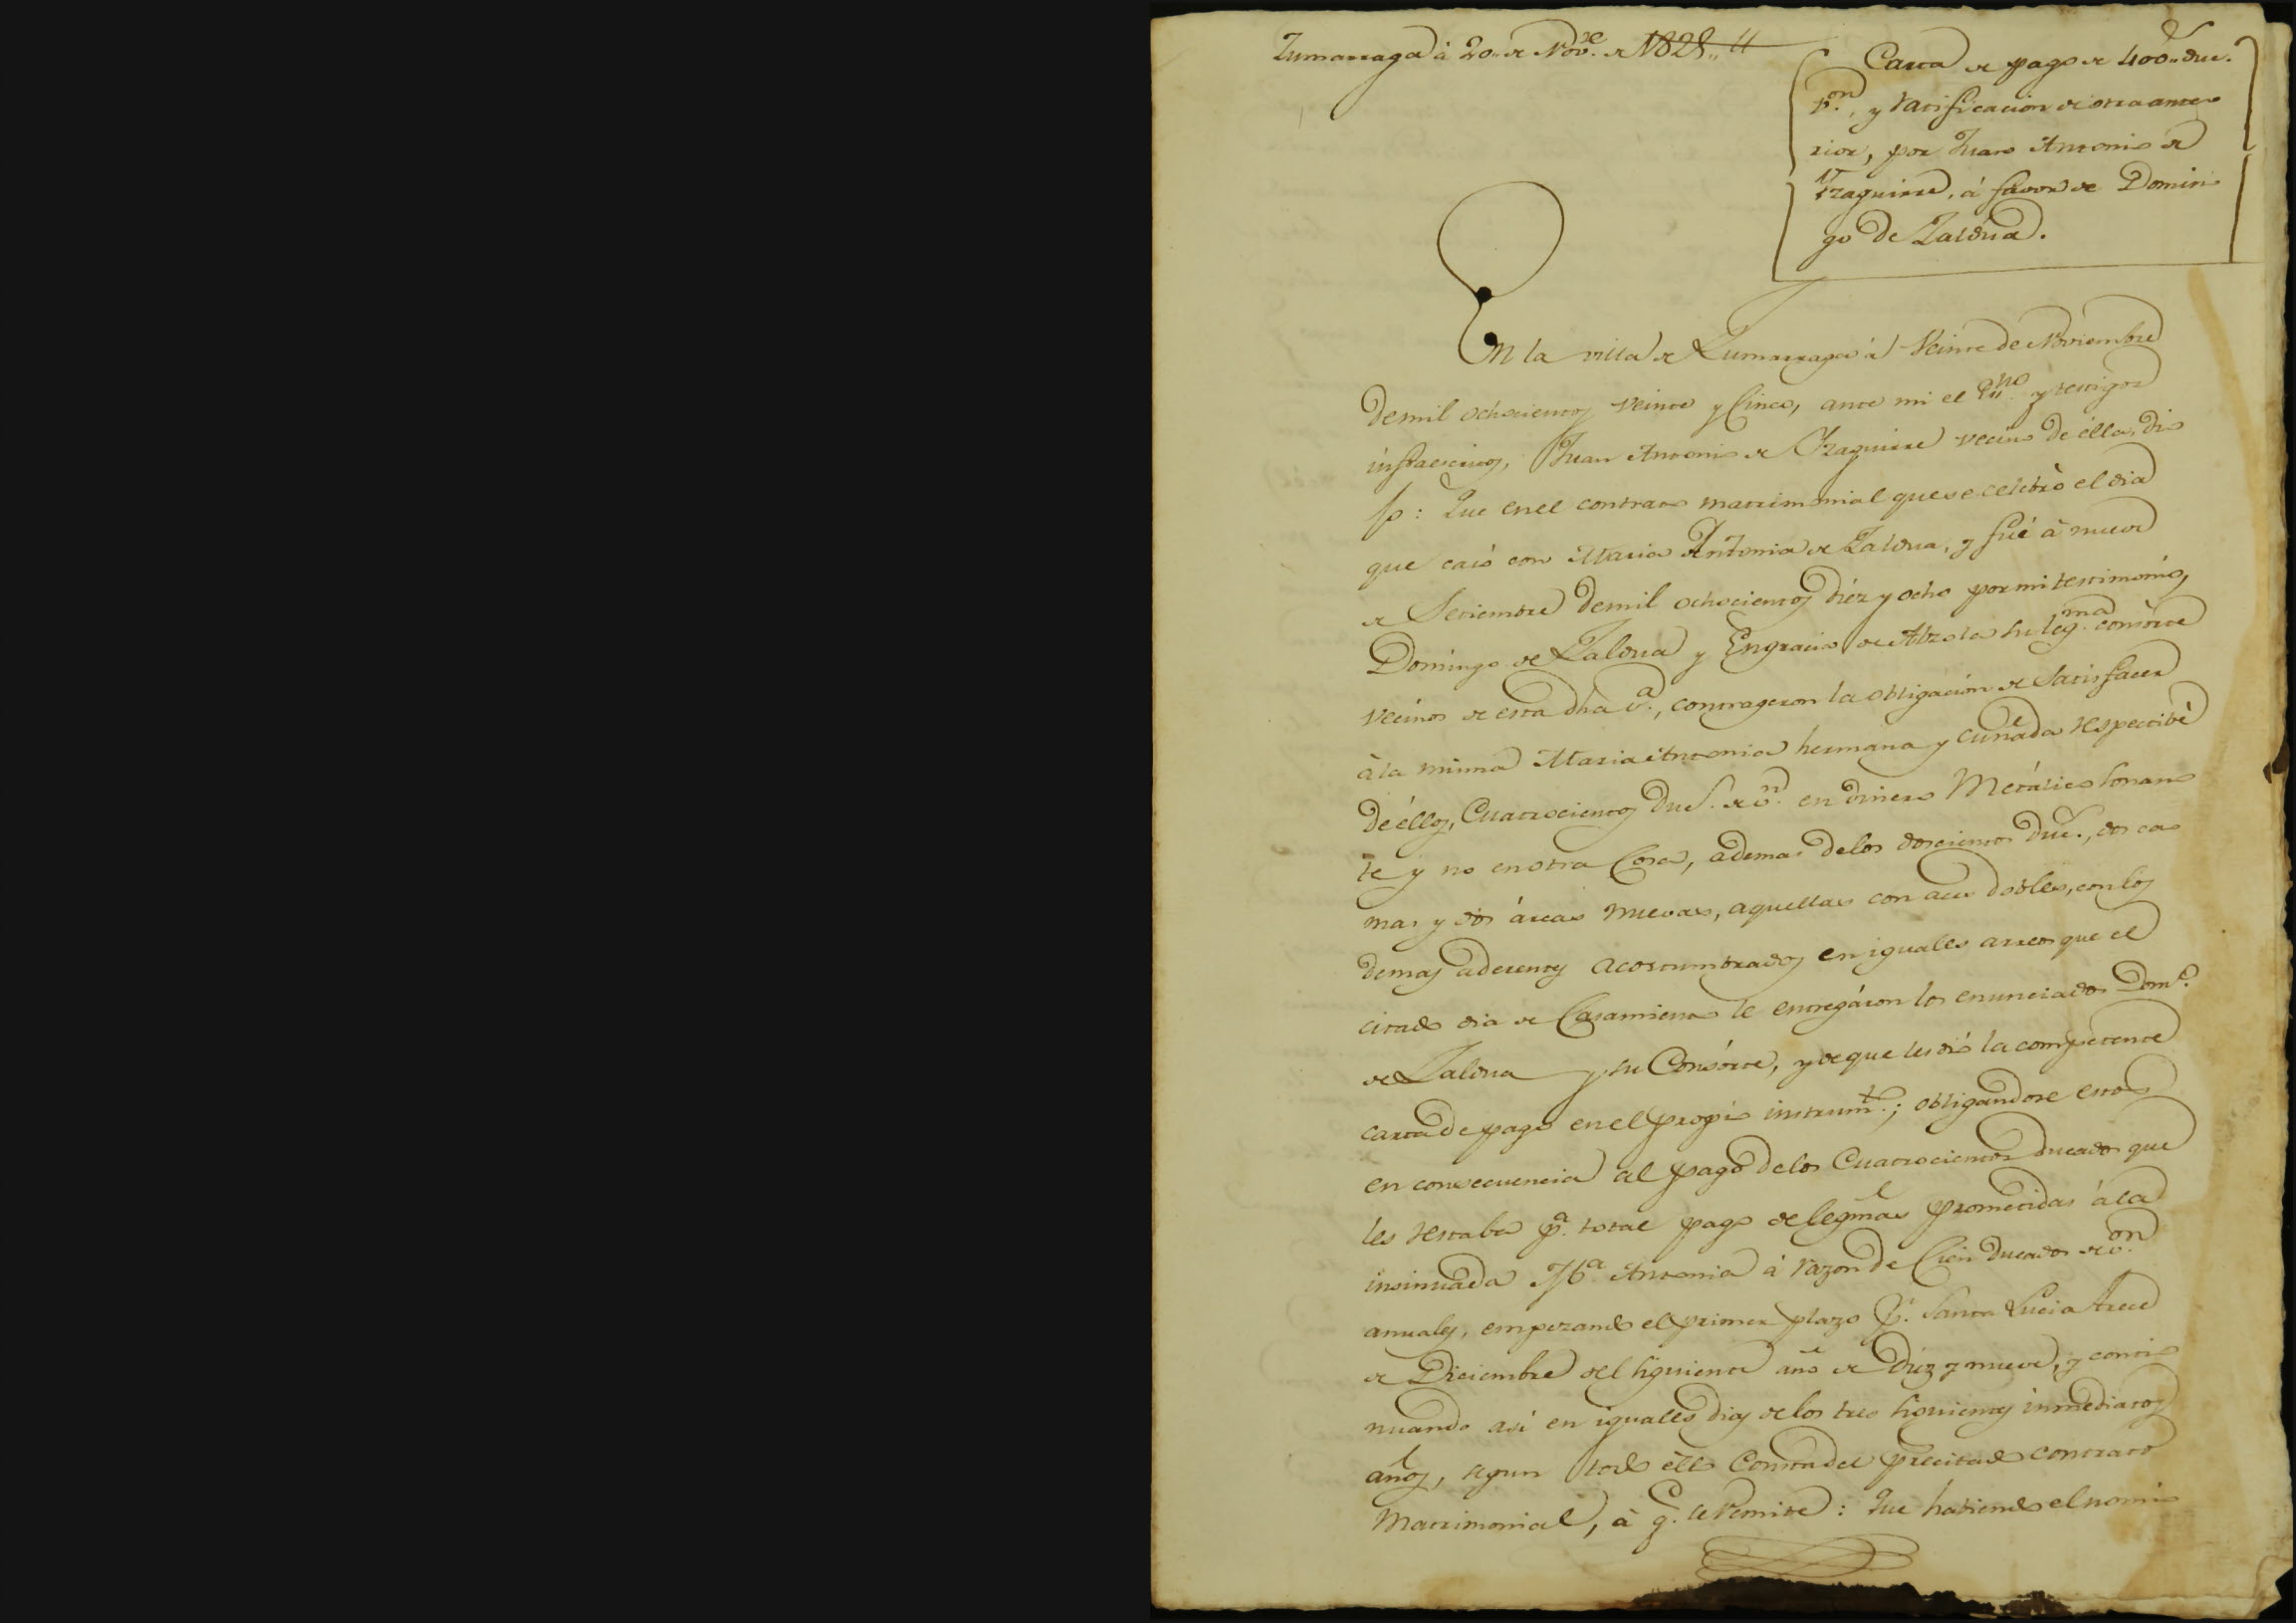 Zumarraga à 20,, de Nov.e de 1825,,
Carta de pago de 400,, duc.s
v.on, y ratificacion de otra ante
rior, por Juan Antonio de
Yzaguirre, á favor de Domin
go de Zaldua.
En la villa de Zumarraga á Veinte de Noviembre
de mil ochocientos veinte y Cinco, ante mi el Esno y testigos
infraescritos, Juan Antonio de Yzaguirre vecino de ella, di
jo: Que en el contrato matrimonial que se celebrò el dia
que casó con Maria Antonia de Zaldua, y fué à nueve
de Setiembre de mil ochocientos diéz y ocho por mi testimonio,
Domingo de Zaldua y Engracia de su leg.ma consòrte
vecinos de esta dha v.a, contrageron la obligación de Satisfacer
à la misma Maria Antonia hermana y cuñada respectibe
de éllos, Cuatrocientos Duc.s de v.n en dinero Metálico sonan
te y no en otra Cosa, ademas de los doscientos Duc.s, dos ca
mas y dos árcas nuevas, aquellas con aces dobles, con los
demas aderentes acostumbrados en iguales arreos que el
citado dia de Casamiento le entregáron los enunciados Dom.o
de Zaldua y su Consórte, y de que les dió la competente
carta de pago en el propio instrum.to; obligandose estos
en consecuencia al pago de los Cuatrocientos ducados que
les restaba p.a total pago de legmas prometidas à la
insinuada M.a Antonia á razon de Cien ducados de v.on
anuales, empezando el primer plazo p.r Santa Lucia trece
de Diciembre del siguiente año de Diez y nueve, y conti
nuando asi en iguales dias de los tres siguientes inmediatos
años, segun todo éllo Consta del precitado contrato
Matrimonial, à q.e se remite: Que habiendo el nomi